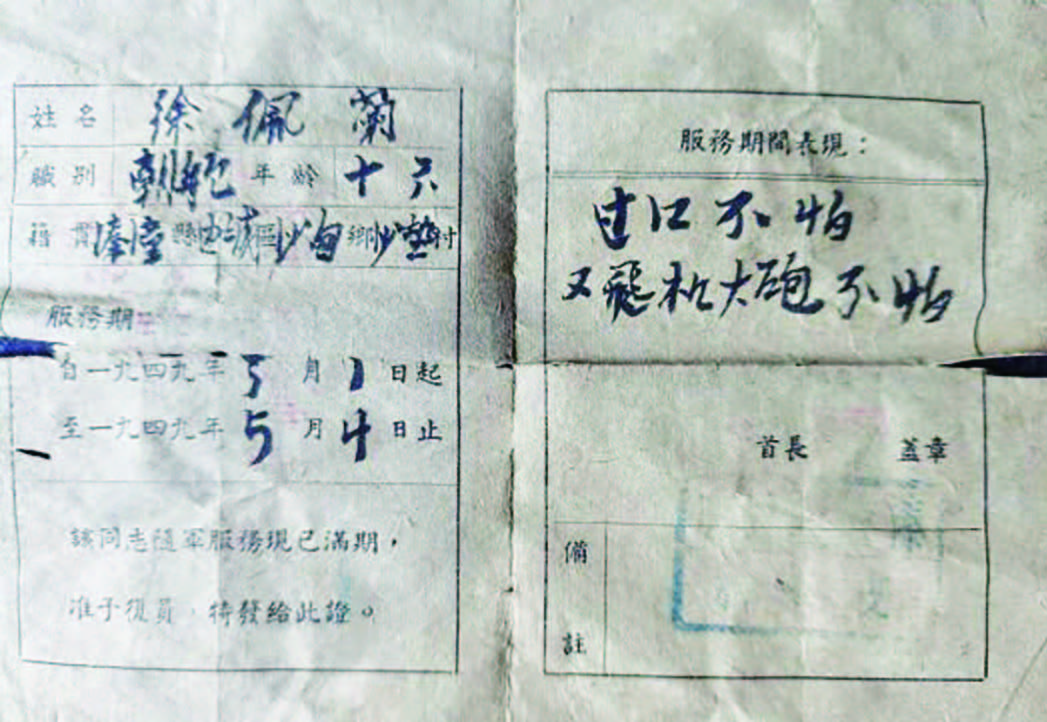 姓名 徐佩蘭
職别 年龄 十六
籍貫 溱潼縣 區 鄉 沙 村
服務期:
自一九四九年5月1日起
至一九四九年5月4日止
該同志隨軍服務現已滿期,
准予復員,特發給此證。
服務期間表現:
过江不怕
又飛机大砲不怕
首長 蓋章
備註